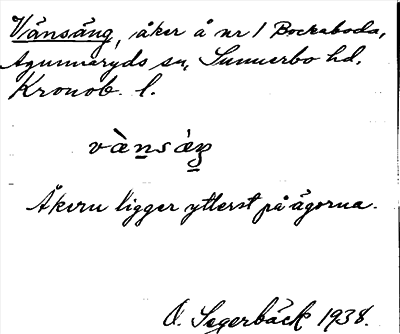 Vänsäng, åker å nr 1 Bockaboda,
Agunnaryds sn, Sunnerbo hd,
Kronob. l.
vàn̲sàŋ̲
Åkern ligger ytterst på ägorna.
O. Segerbäck 1938.